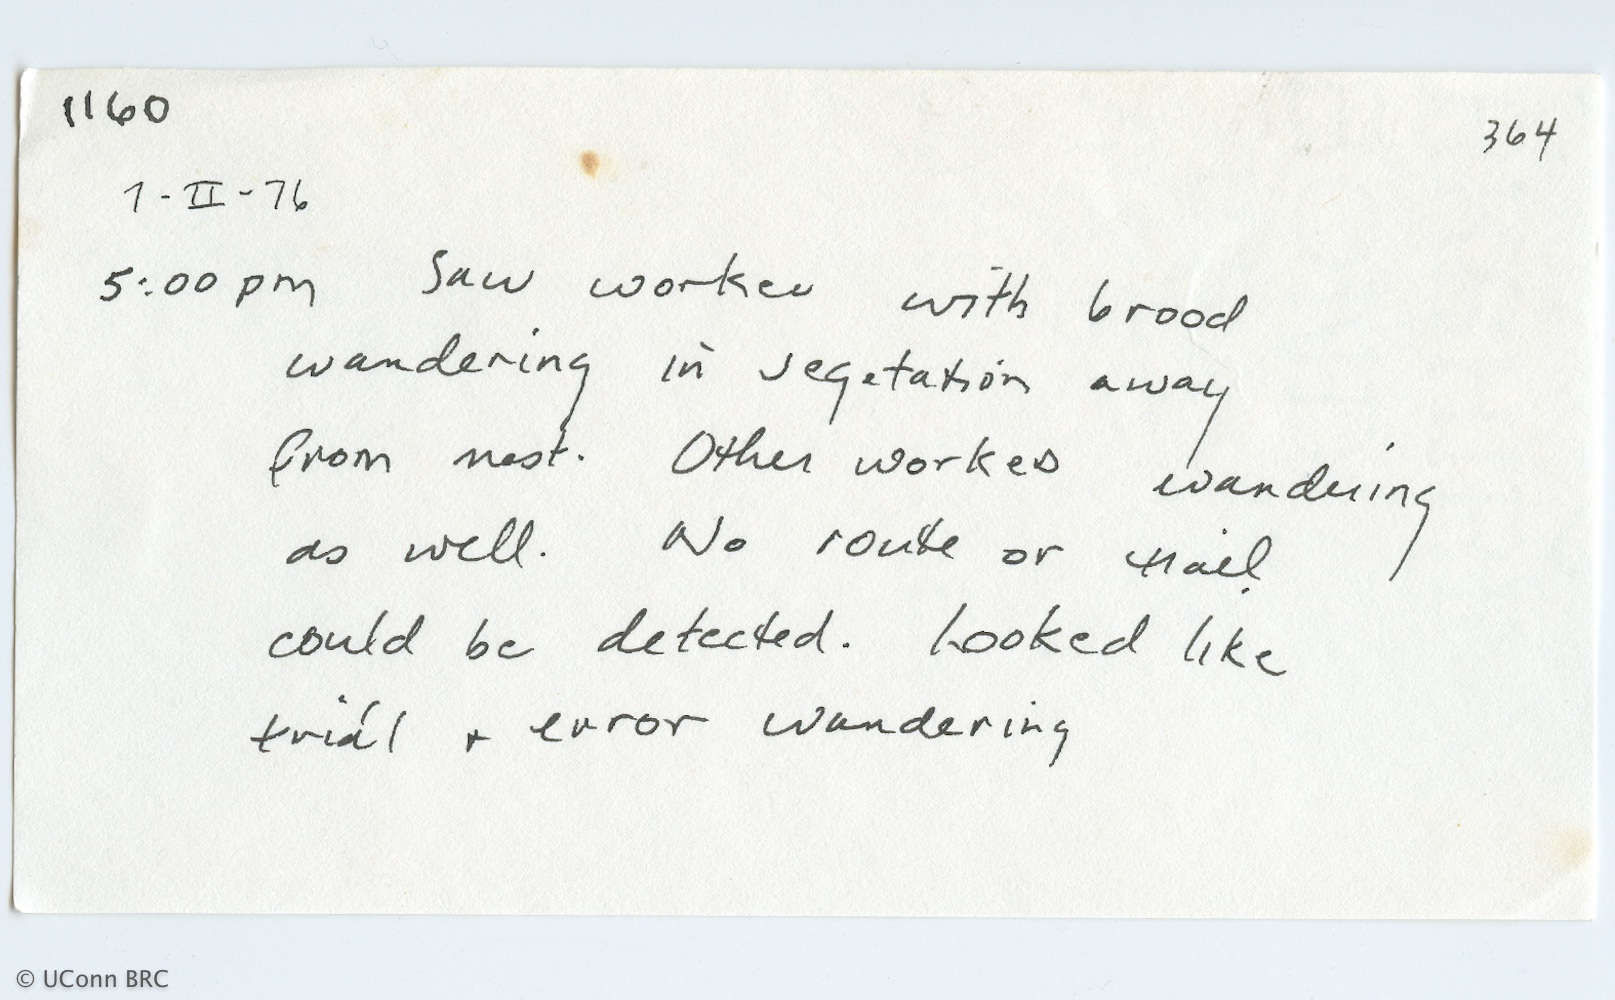 1160
364
7-II-76
5:00 pm Saw worker with brood
wandering in vegetation away
from nest. Other workers wandering
as well. No route or trail
could be detected. Looked like
trial + error wandering
© UConn BRC